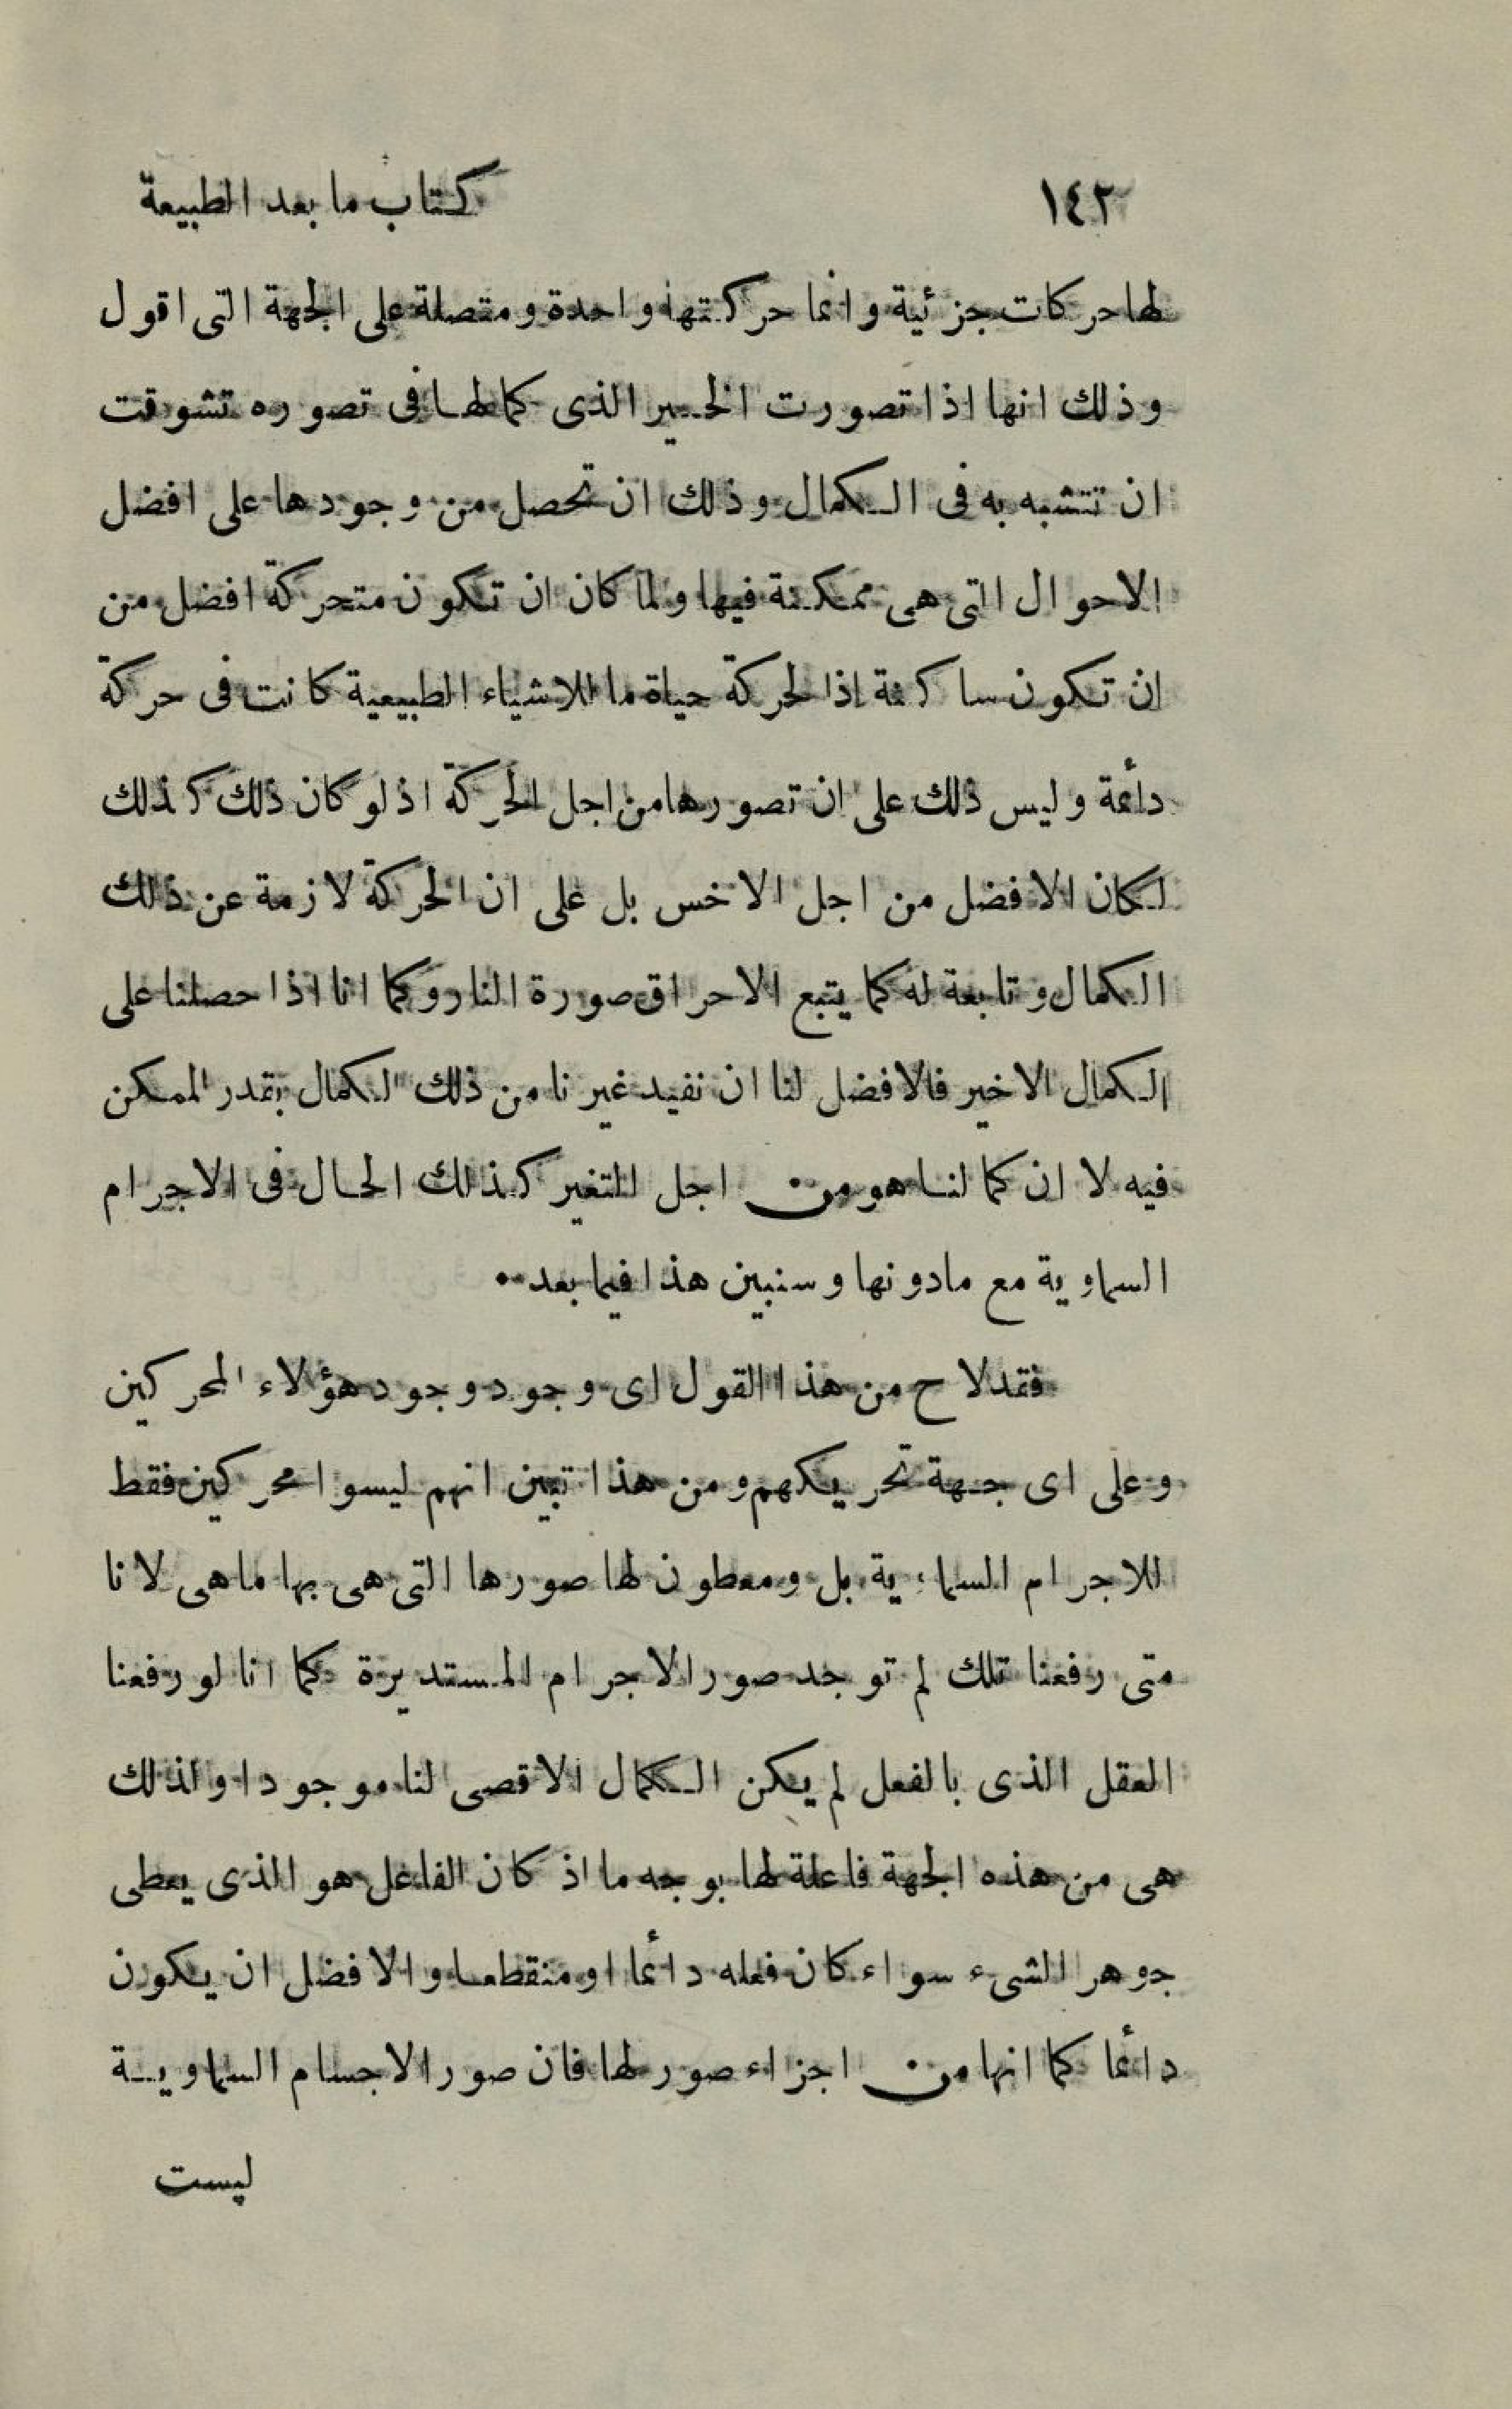 ١٤٢ كتاب ما بعد الطبيعة
لها حركات جزئية وانما حركتها واحدة ومتصلة على الجهة التى اقول
وذلك انها اذا تصورت الخير الذى كمالها فى تصوره تشوقت
ان تتشبه به فى الكمال وذلك ان تحصل من وجودها على افضل
الاحوال التى هى ممكنة فيها ولما كان ان تكون متحركة افضل من
ان تكون ساكنة اذا لحركة حياة ما للاشياء الطبيعية كانت فى حركة
دأئمة وليس ذلك على ان تصورها من اجل الحركة اذ لو كان ذلك كذلك
لكان الافضل من اجل الاخس بل على ان الحركة لازمة عن ذلك
الكمال وتابعة له كما يتبع الاحراق صورة النار وكما انا اذا حصلنا على
الكمال الاخير فالافضل لنا ان نفيد غيرنا من ذلك الكمال بقدر الممكن
فيه لا ان كما لنا هو من اجل التغير كذلك الحال فى الاجرام
السماوية مع مادونها وسنبين هذا فيما بعد.
فقد لاح من هذا القول اى وجود وجود هؤلاء المحركين
وعلى اى جهة تحريكهم ومن هذا تبين انهم ليسوا محركين فقط
للاجرام السماوية بل ومعطون لها صورها التى هى بها ما هى لانا
متى رفعنا تلك لم توجد صور الاجرام المستديرة كما انا لو رفعنا
العقل الذى بالفعل لم يكن الكمال الاقصى لنا موجودا ولذلك
هى من هذه الجهة فاعلة لها بوجه ما اذ كان الفاعل هو الذى يعطى
جوهر الشىء سواء كان فعله دأئما او منقطعا والافضل ان يكون
دأئما كما انها من اجزاء صور لها فان صور الاجسام السماوية
ليست